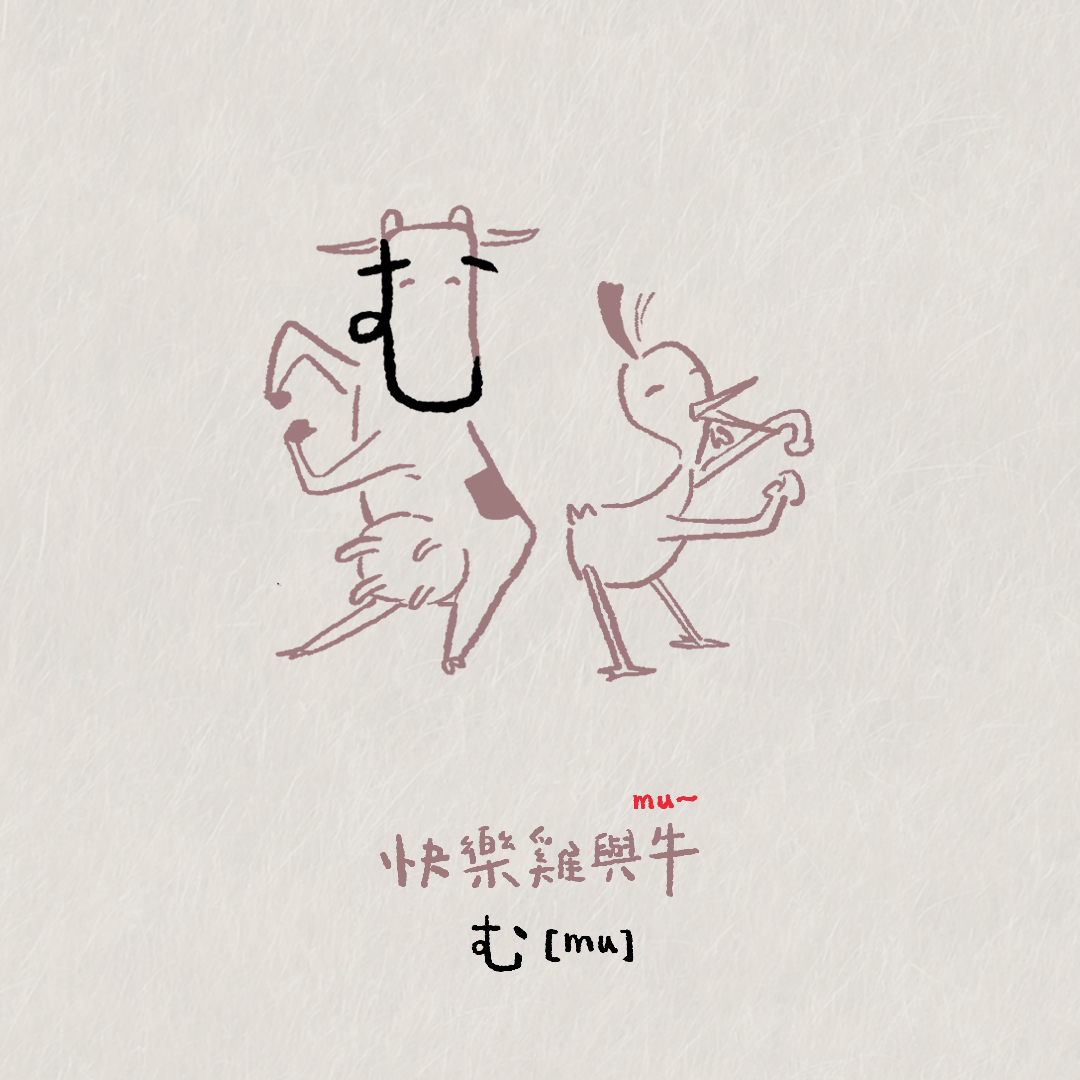 mu~
快樂雞與牛
む [mu]